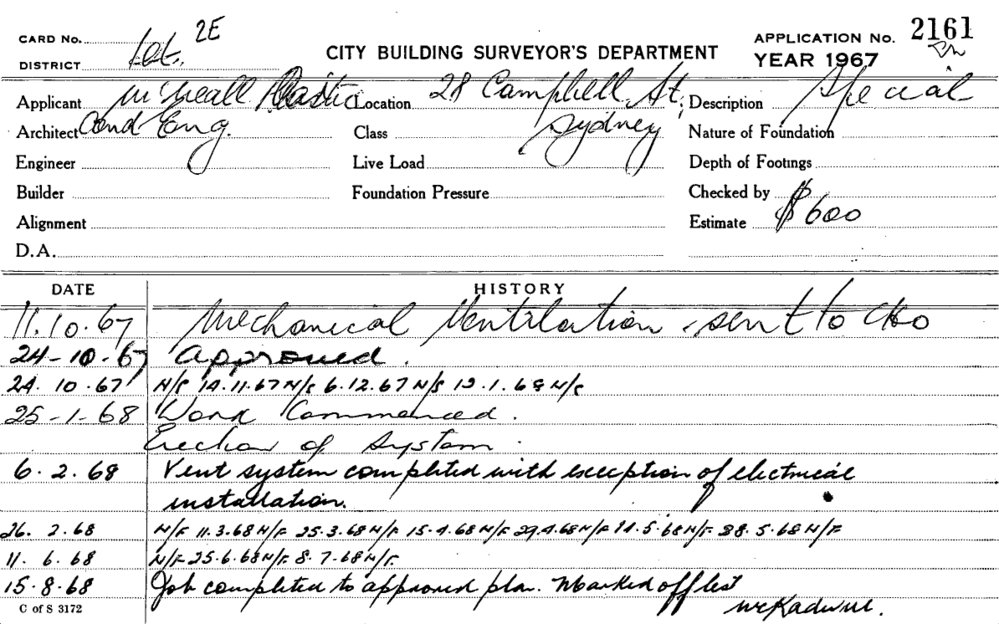 CARD No. 2E
DISTRICT
CITY BUILDING SURVEYOR'S DEPARTMENT
APPLICATION No. 2161
YEAR 1967
Applicant Plastic Location 28 Campbell St, Description Special
Architect and Eng. Class Sydney Nature of Foundation
Engineer Live Load Depth of Footings
Builder Foundation Pressure Checked by
Alignment Estimate $600
D.A.
DATE HISTORY
11.10.67 Mechanical Ventilation sent to
24-10-67 Approved.
24.10.67 N/S 14.11.67 N/S 6.12.67 N/S N/S
25-1-68 Work Commenced.
Erection of System.
6.2.68 Vent system completed with exception of electrical
installation.
26.2.68 N/F 11.3.68 N/F 25.3.68 N/F 15.4.68 N/F 29.4.68 N/F 5.68 N/F 28.5.68 N/F
11.6.68 N/F 25.6.68 N/F 8.7.68 N/F.
15.8.68 Job completed to approved plan. Marked off list
C of S 3172